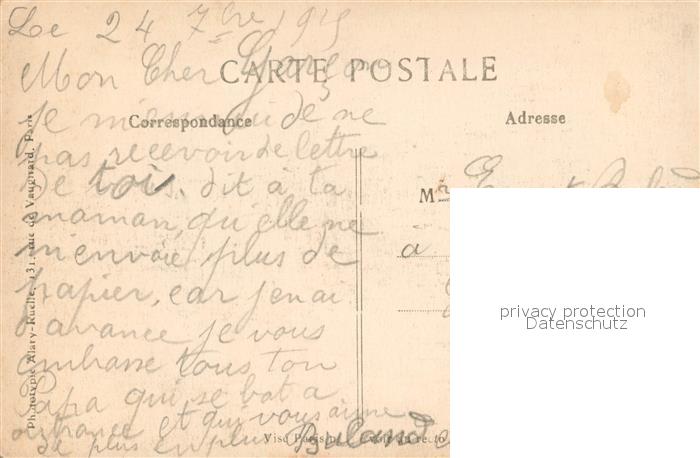 Le 24 7bre 1915
Mon Cher Garçon
CARTE POSTALE
Correspondance
Adresse
Je m'ennui de ne
pas recevoir de lettre
de toi. dit à ta
maman, qu'elle ne
m'envoie plus de
papier, car jenai
d'avance je vous
embrasse tous ton
Papa qui se bat a
outrance et qui vous aime
de plus en plus
Mr
a
Phototypie Alary-Ruelle, 131, rue de Vaugirard, Paris
Visé Paris au recto
privacy protection
Datenschutz